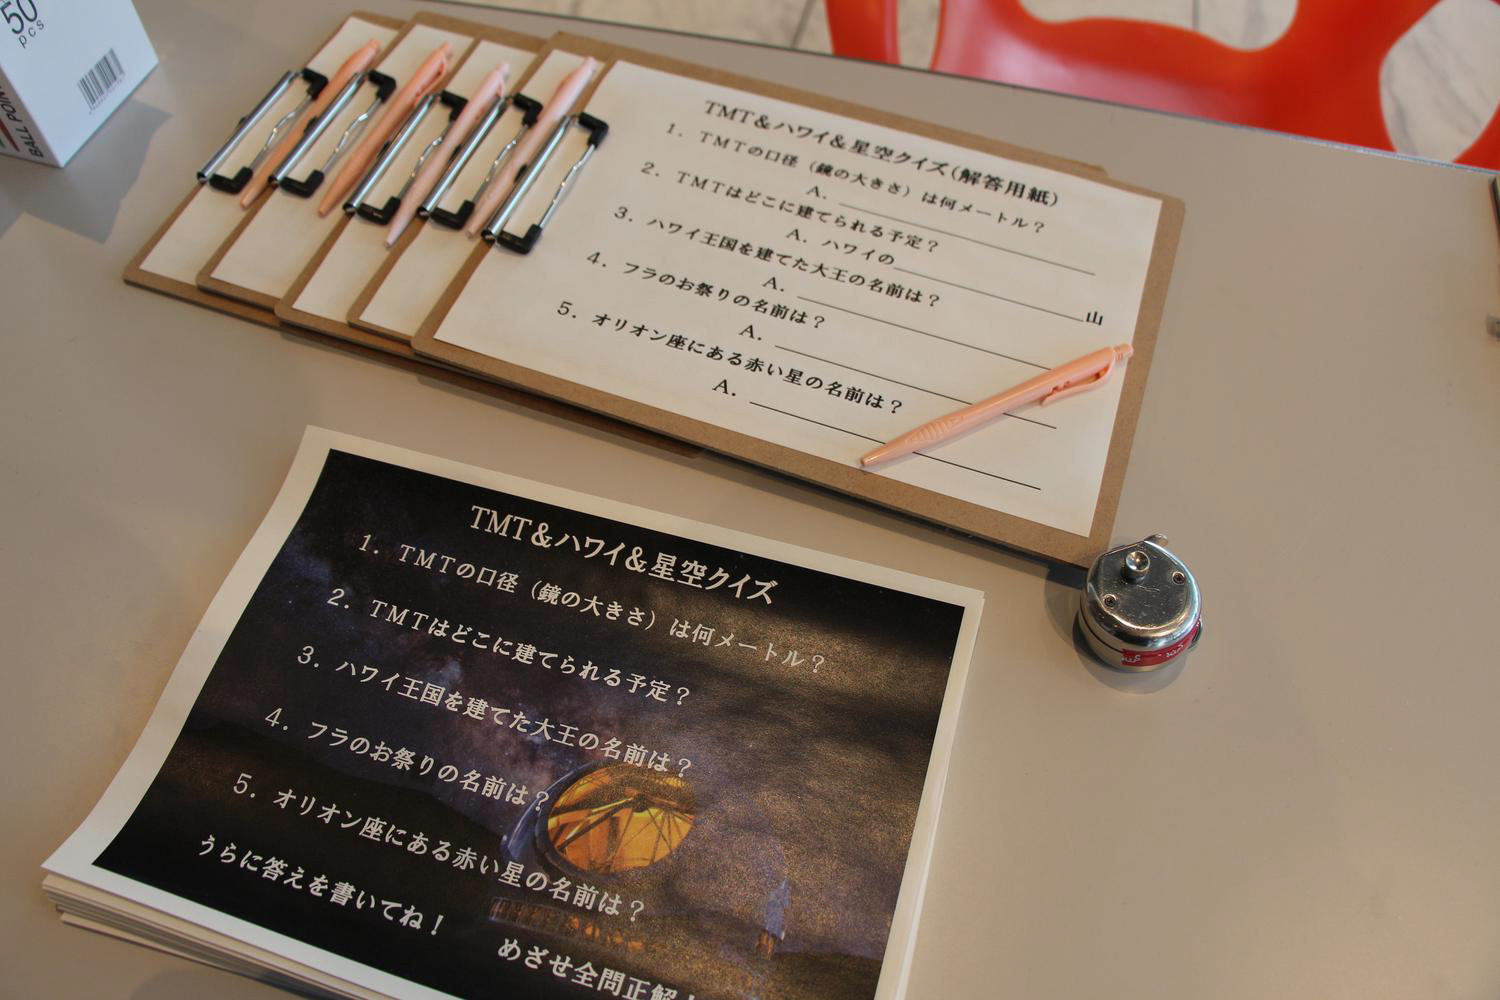 50
pcs
BALL POIN
TMT&ハワイ&星空クイズ(解答用紙)
1. TMTの口径(鏡の大きさ)は何メートル?
A.
2. TMTはどこに建てられる予定?
A. ハワイの 山
3. ハワイ王国を建てた大王の名前は?
A.
4. フラのお祭りの名前は?
A.
5. オリオン座にある赤い星の名前は?
A.
TMT&ハワイ&星空クイズ
1. TMTの口径(鏡の大きさ)は何メートル?
2. TMTはどこに建てられる予定?
3. ハワイ王国を建てた大王の名前は?
4. フラのお祭りの名前は?
5. オリオン座にある赤い星の名前は?
うらに答えを書いてね!
めざせ全問正解!